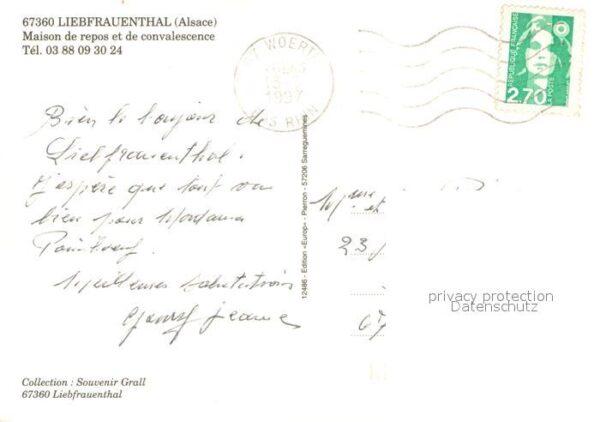 67360 LIEBFRAUENTHAL (Alsace)
Maison de repos et de convalescence
Tél. 03 88 09 30 24
WOERTH
1997
BAS RHIN
RÉPUBLIQUE FRANÇAISE
2,70
LA POSTE
Bien le bonjour de
Liebfrauenthal.
J'espère que tout va
bien pour Madame
Meilleures salutations
Jeanne
12486 - Edition «Europ» - Pierron - 57206 Sarreguemines
et
23
67
privacy protection
Datenschutz
Collection : Souvenir Grall
67360 Liebfrauenthal